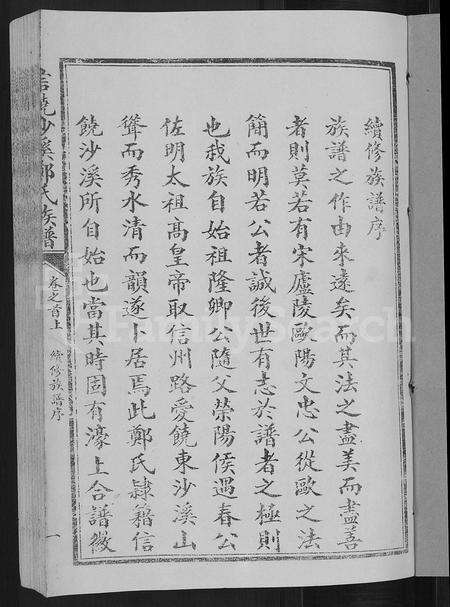 續修族譜序
族譜之作由來遠矣而其法之盡美而盡善
者則莫若有宋廬陵歐陽文忠公從歐之法
簡而明若公者誠後世有志於譜者之極則
也我族自始祖隆卿公隨父榮陽侯遇春公
佐明太祖高皇帝取信州路愛饒東沙溪山
聳而秀水清而韻遂卜居焉此鄭氏隸籍信
饒沙溪所自始也當其時固有濠上合譜徽
信饒沙溪鄭氏族譜
卷之首上 續修族譜序 一
FamilySearch